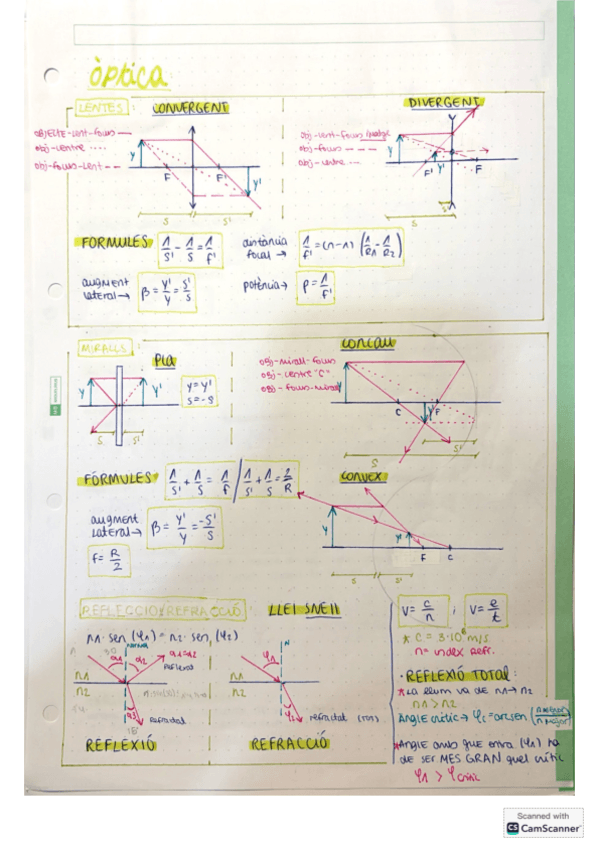 òptica
LENTES: CONVERGENT
OBJECTE-Lent-focus
obj-centre
obj-focus-Lent
y
F
F'
y'
s
s'
DIVERGENT
obj-focus
obj-centre
y
F'
y'
F
s'
s
FORMULES 1/s' - 1/s = 1/f'
distància focal → 1/f' = (n-1) (1/R1 - 1/R2)
augment lateral → β = y'/y = s'/s
potència → P = 1/f'
MIRALLS:
Pla
y
y'
s
s'
y = y'
s = -s
CONCAU
obj-mirall-focus
obj-centre "C"
obj-focus-mirall
y
C
F
y'
s'
s
FÓRMULES 1/s' + 1/s = 1/f / 1/s' + 1/s = 2/R
augment lateral → β = y'/y = -s'/s
f = R/2
CONVEX
y
y'
F
C
s
s'
REFLECCIÓ/REFRACCIÓ LLEI SNEll
n1 · sen (φ1) = n2 · sen (φ2)
normal
α1
α2
α1=α2
Reflexat
n1
n2
α3
Refractat
REFLEXIÓ
N
φ1
n1
n2
φ2
refractat (raig)
REFRACCIÓ
v = c/n ; v = e/t
* c = 3·10⁸ m/s
n = index Refr.
· REFLEXIÓ TOTAL:
* La llum va de n1 → n2
n1 > n2
Angle crític → φc = arcsen (n menor/n major)
* Angle amb que entra (φ1) ha
de ser MES GRAN quel crític
φ1 > φcrític
Scanned with
CS CamScanner